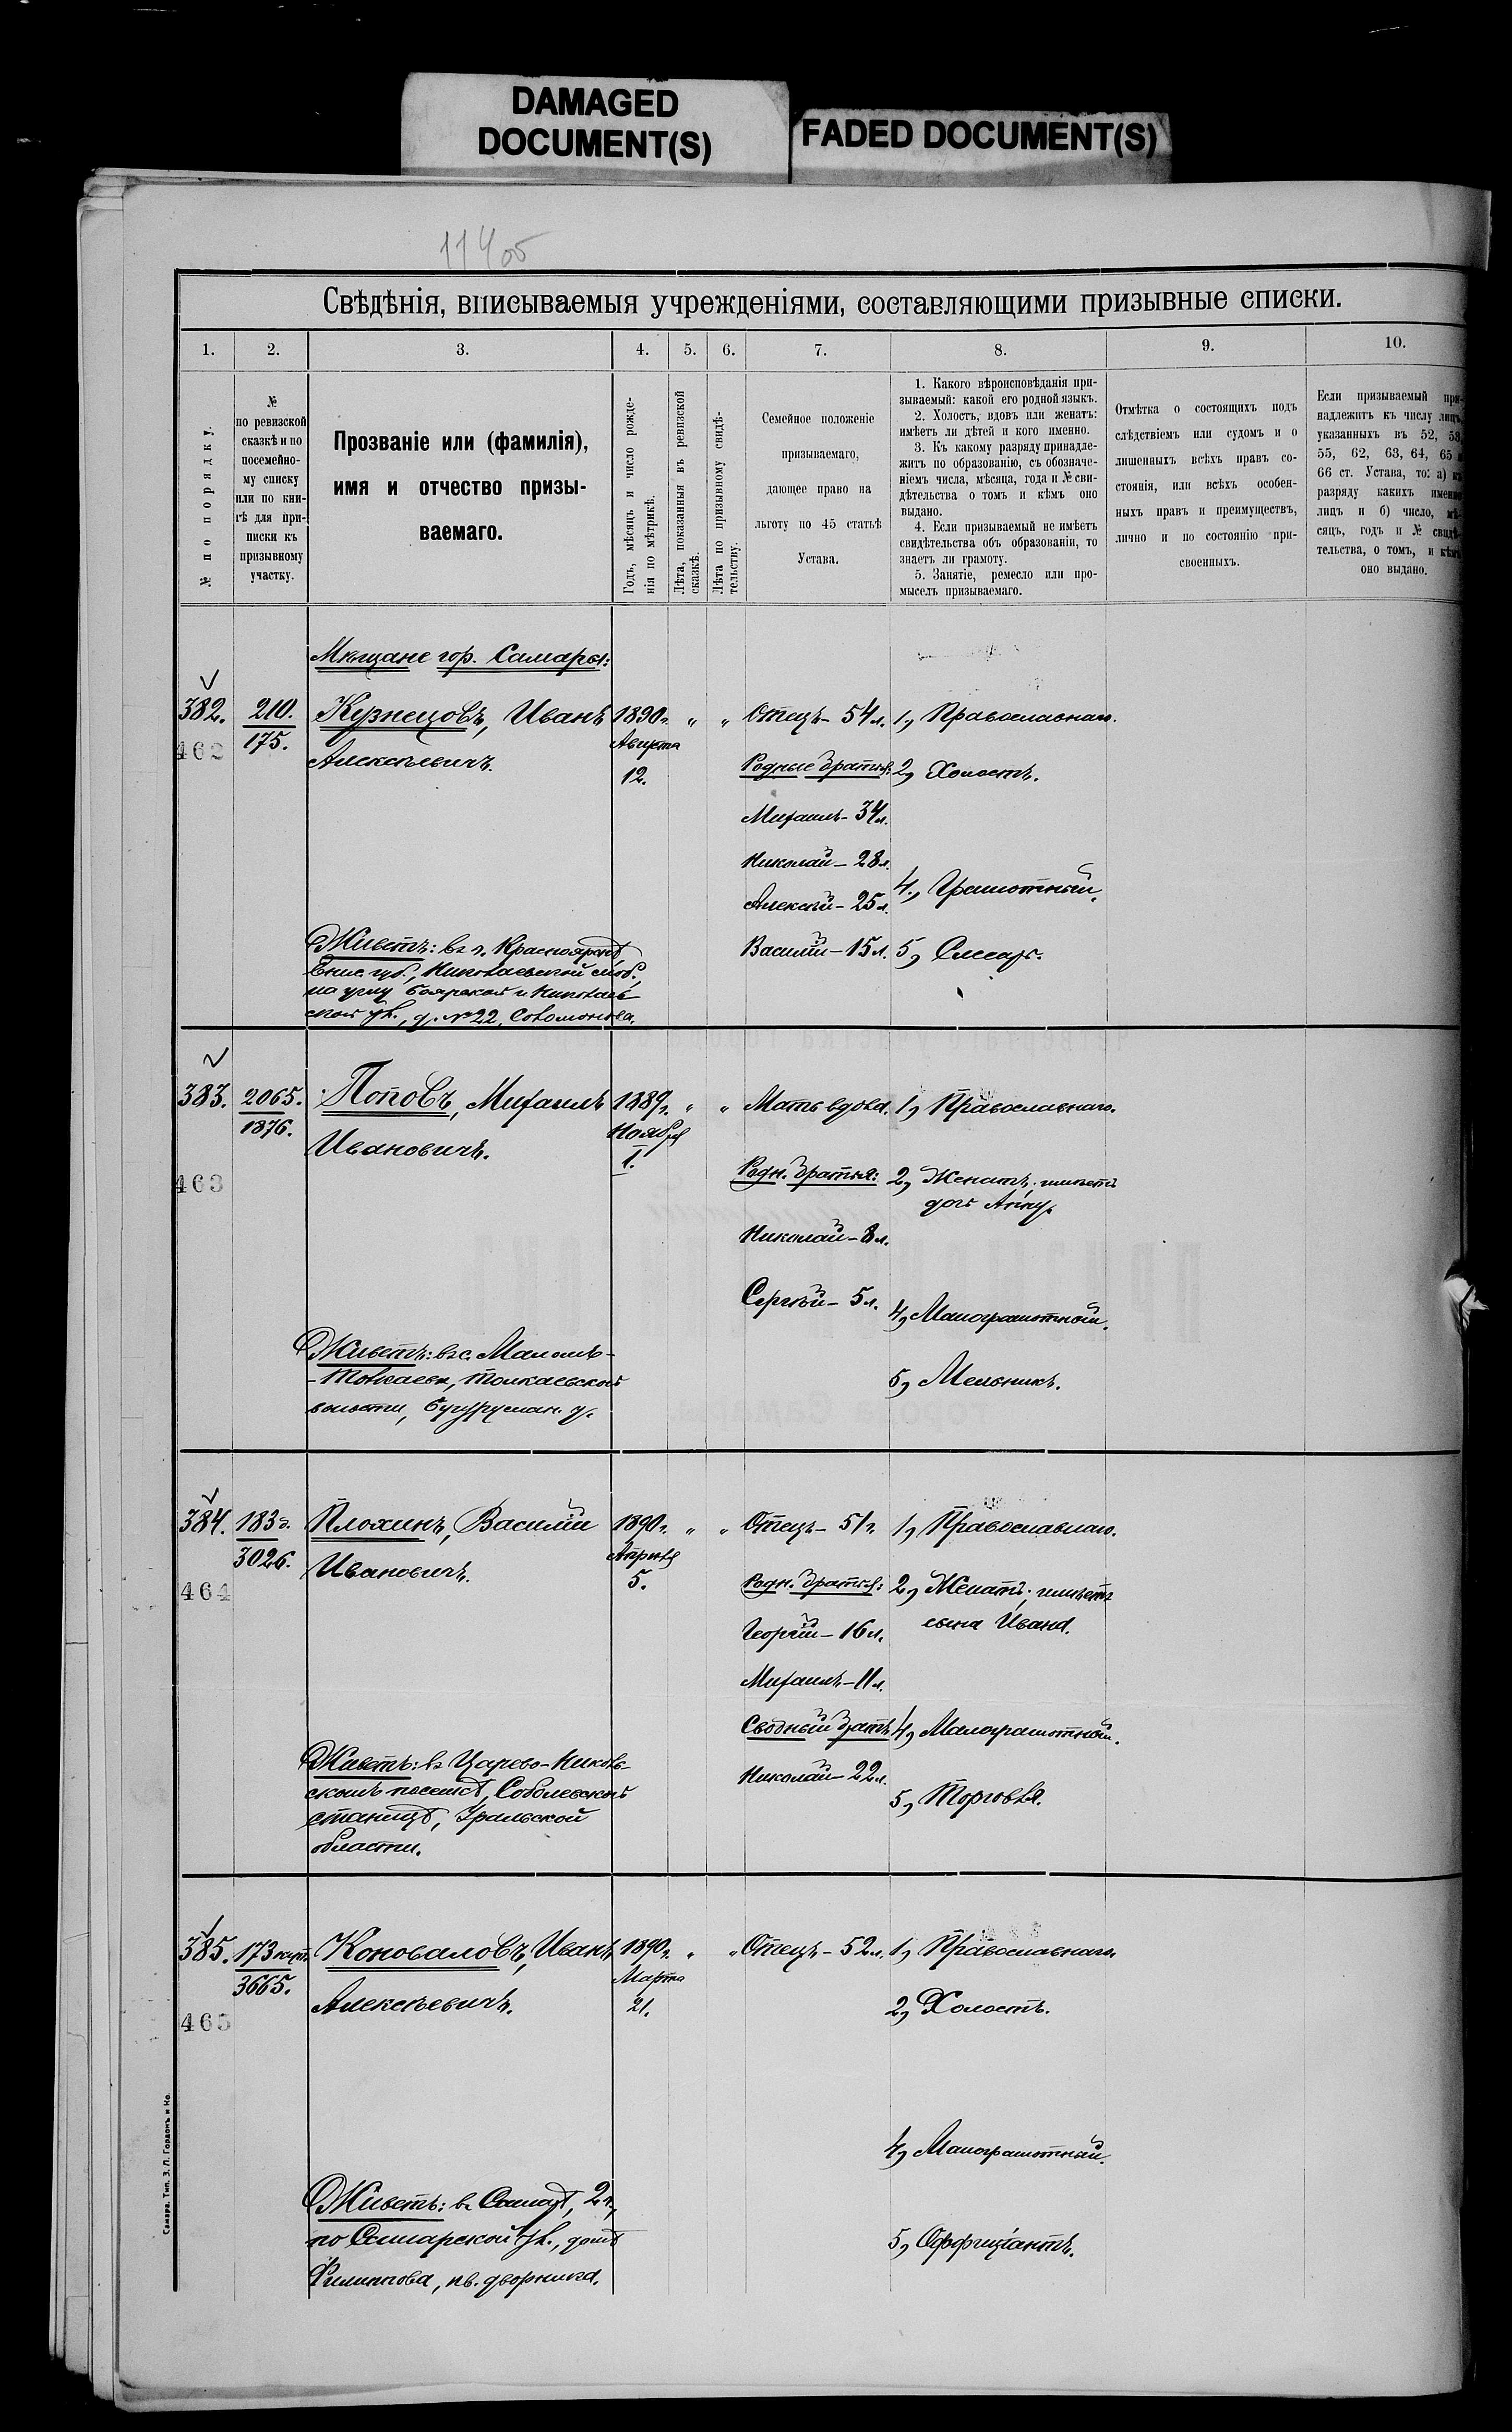 DAMAGED
DOCUMENT(S)
FADED DOCUMENT(S)
Свѣдѣнія, вписываемыя учрежденіями, составляющими призывные списки.
1.
2.
3.
4.
5.
6.
7.
8.
9.
10.
№ по порядку.
№
по ревизской
сказкѣ и по
посемейно-
му списку
или по кни-
гѣ для при-
писки къ
призывному
участку.
Прозваніе или (фамилія),
имя и отчество призы-
ваемаго.
Годъ, мѣсяцъ и число рожде-
нія по метрикѣ.
Лѣта, показанныя въ ревизской
сказкѣ.
Лѣта по призывному свидѣ-
тельству.
Семейное положеніе
призываемаго,
дающее право на
льготу по 45 статьѣ
Устава.
1. Какого вѣроисповѣданія при-
зываемый: какой его родной языкъ.
2. Холостъ, вдовъ или женатъ:
имѣетъ ли дѣтей и кого именно.
3. Къ какому разряду принадле-
житъ по образованію, съ обозначе-
ніемъ числа, мѣсяца, года и № сви-
дѣтельства о томъ и кѣмъ оно
выдано.
4. Если призываемый не имѣетъ
свидѣтельства объ образованіи, то
знаетъ ли грамоту.
5. Занятіе, ремесло или про-
мыселъ призываемаго.
Отмѣтка о состоящихъ подъ
слѣдствіемъ или судомъ и о
лишенныхъ всѣхъ правъ со-
стоянія, или всѣхъ особен-
ныхъ правъ и преимуществъ,
лично и по состоянію при-
своенныхъ.
Если призываемый при-
надлежитъ къ числу лицъ,
указанныхъ въ 52, 53,
55, 62, 63, 64, 65 и
66 ст. Устава, то: а) къ
разряду какихъ именно
лицъ и б) число, мѣ-
сяцъ, годъ и № свидѣ-
тельства, о томъ, и кѣмъ
оно выдано.
Мѣщане гор. Самары:
382.
462
210.
175.
Кузнецовъ, Иванъ
Алексѣевичъ.
1890 г.
Августа
12.
" "
Отецъ - 54 л.
Родные братья:
Михаилъ - 34 л.
Николай - 28 л.
Алексѣй - 25 л.
Василій - 15 л.
1, Православнаго.
2, Холостъ.
4, Грамотный.
5, Слесарь.
Живетъ: въ г. Красноярскѣ,
Енис. губ., Николаевской слоб.,
на углу Боярской и Николаев-
ской ул., д. № 22, Соломонова.
383.
463
2065.
1876.
Поповъ, Михаилъ
Ивановичъ.
1889 г.
Ноября
1.
" "
Мать вдова.
Родн. братья:
Николай - 8 л.
Сергѣй - 5 л.
1, Православнаго.
2, Женатъ; имѣетъ
дочь Анну.
4, Малограмотный.
5, Мельникъ.
Живетъ: въ с. Маломъ-
-Толкаевѣ, Толкаевской
волости, Бугуруслан. у.
384.
464
183 д.
3026.
Плохинъ, Василій
Ивановичъ.
1890 г.
Апрѣля
5.
" "
Отецъ - 51 г.
Родн. братья:
Георгій - 16 л.
Михаилъ - 11 л.
Сводный братъ
Николай - 22 л.
1, Православнаго.
2, Женатъ; имѣетъ
сына Ивана.
4, Малограмотный.
5, Торговля.
Живетъ: въ Царево-Николь-
скомъ поселкѣ, Соболевской
станицѣ, Уральской
области.
385.
465
173 куп.
3665.
Коноваловъ, Иванъ
Алексѣевичъ.
1890 г.
Марта
21.
" "
Отецъ - 52 л.
1, Православнаго.
2, Холостъ.
4, Малограмотный.
5, Оффиціантъ.
Живетъ: въ Самарѣ, 2 ч.,
по Самарской ул., домъ
Филиппова, кв. дворника.
Самара. Тип. З. Л. Гордонъ и Ко.